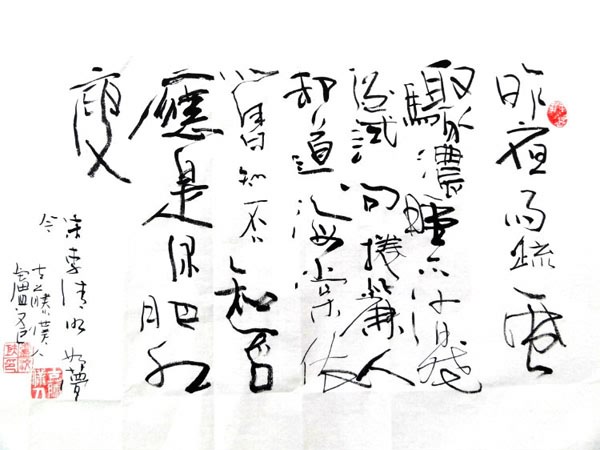 昨夜雨疏風
驟濃睡不消殘
酒試問捲簾人
却道海棠依
舊知否知否
應是綠肥紅
瘦
宋李清照如夢
令